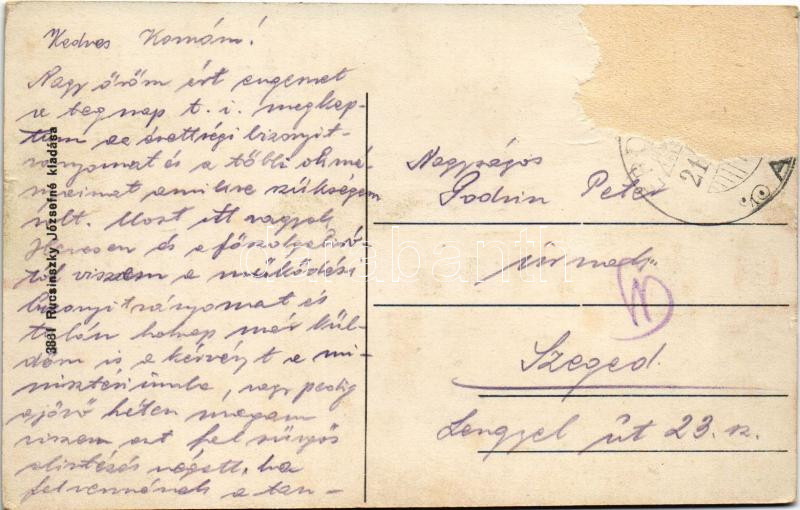 Kedves Komám!
Nagy öröm ért engemet
tegnap t. i. megkap-
tam az érettségi bizonyít-
ványomat és a többi okmá-
nyaimat amikre szükségem
volt. Most itt vagyok
Hevesen és a főszolgabíró
tól viszem a működési
bizonyítványomat és
talán holnap már kül-
döm is a kérvényt a mi-
nisztériumba, vagy pedig
a jövő héten magam
viszem azt fel sürgős
elintézés végett, ha
felvennének a tan-
3881 Rucsinszky Józsefné kiadása
Nagyságos
Podrin Peter
úrnak
Szeged.
Lengyel út 23. sz.
darabanth